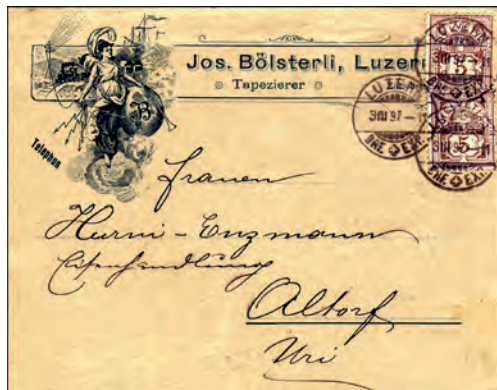 Jos. Bölsterli, Luzern
Tapezierer
Telephon
B
LUZERN
3 III 97 - 11
BRF. EXP.
5
5
Frauen
Hurni-Enzmann
Eisenhandlung
Altorf
Uri